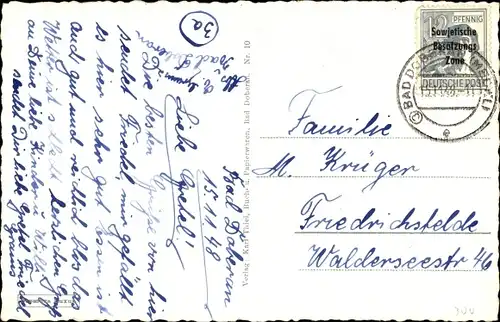 12 PFENNIG
Sowjetische
Besatzungs
Zone
DEUTSCHE POST
BAD DOBERAN (MECKL)
3a
Bad Doberan
Bad Doberan
15.11.48
Liebe Gretel!
Die besten Grüße von hier
sendet Friedel mir gefällt
es hier sehr gut Essen ist
auch gut und reichlich blos das
Wetter ist schlecht herzlichen Gruß
an Deine liebe Kinder u. Willi
sendet Dir liebe Gretel Friedel
Verlag: Karl Thiel, Buch- u. Papierwaren, Bad Doberan. Nr. 10
Familie
M. Krüger
Friedrichsfelde
Walderseestr 46